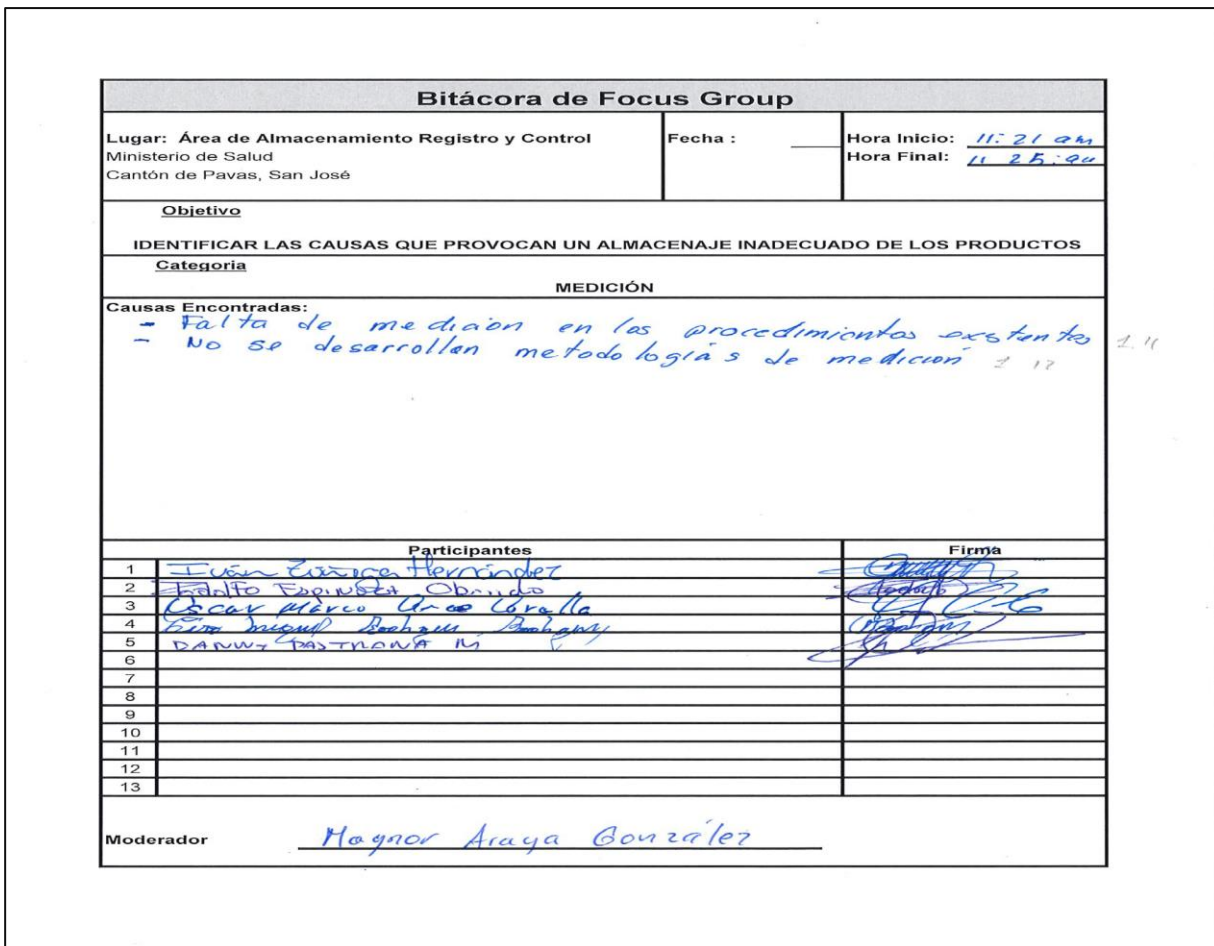 Bitácora de Focus Group
Lugar: Área de Almacenamiento Registro y Control
Ministerio de Salud
Cantón de Pavas, San José
Fecha :
Hora Inicio: 11:21 am
Hora Final: 11 25:
Objetivo
IDENTIFICAR LAS CAUSAS QUE PROVOCAN UN ALMACENAJE INADECUADO DE LOS PRODUCTOS
Categoria
MEDICIÓN
Causas Encontradas:
- Falta de medicion en los procedimientos existentes
- No se desarrollan metodologías de medicion
Participantes
Firma
1 Iván Zúñiga Hernández
2 Espinoza
3 Oscar Marco
4 Miguel
5 DANNY PASTRANA M
6
7
8
9
10
11
12
13
Moderador Magnor Araya González